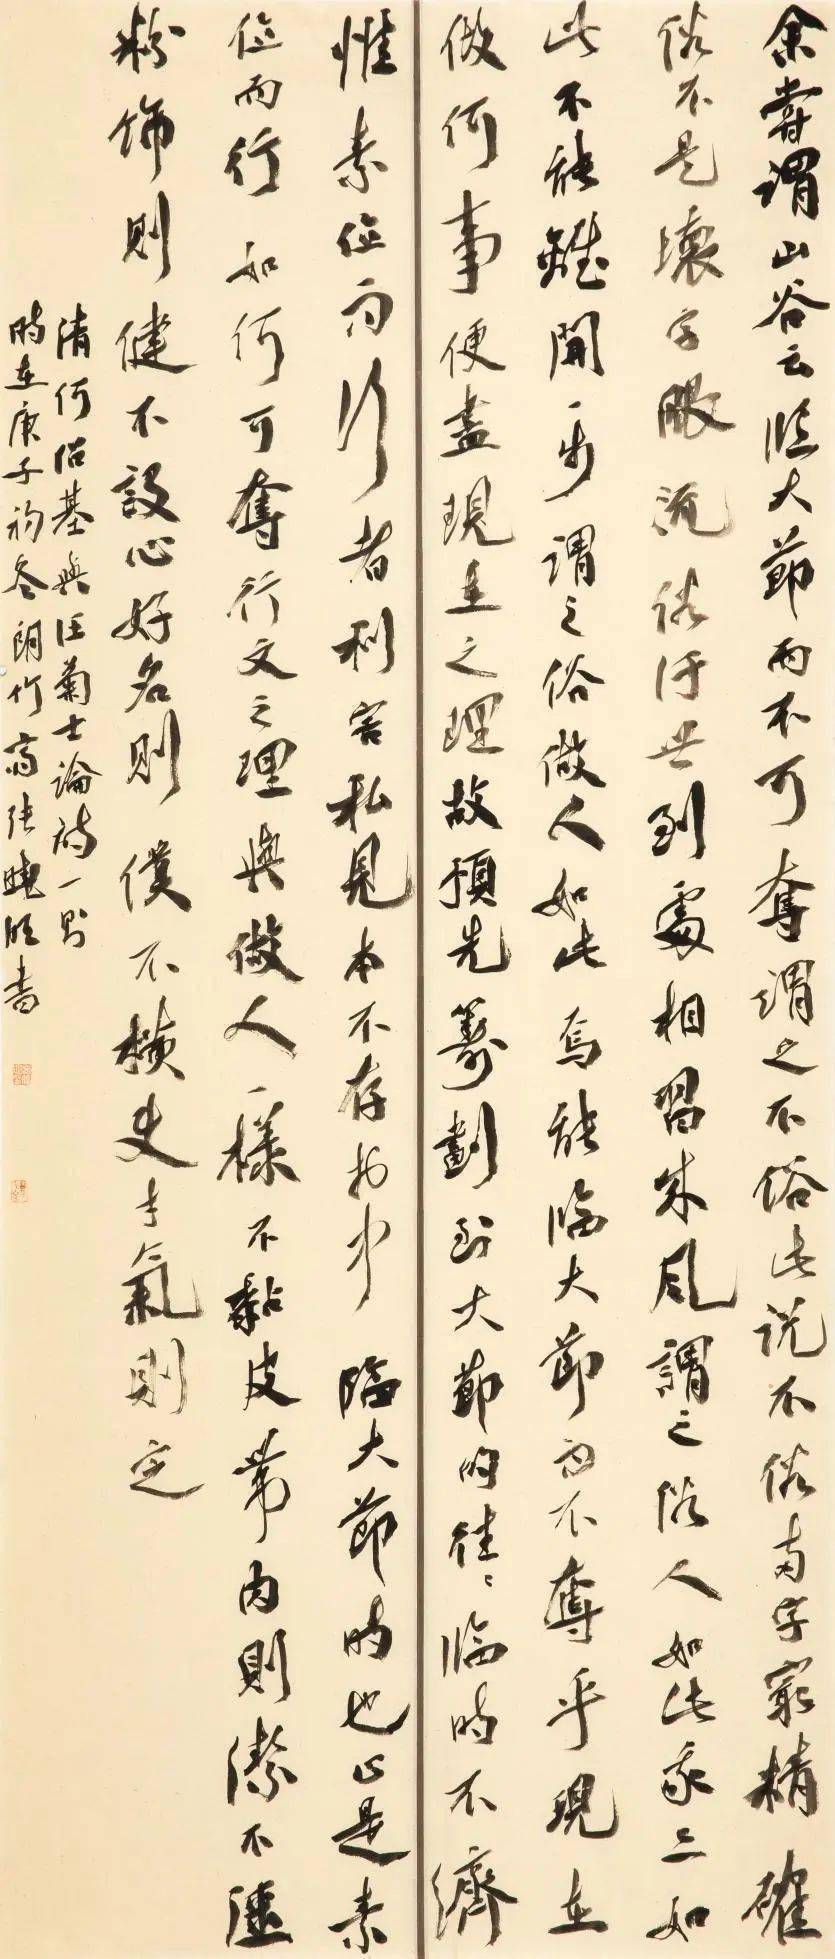 余嘗謂山谷云臨大節而不可奪謂之不俗此說不俗兩字最精確
俗不是壞字眼流俗污世到處相習成風謂之俗人如此我亦如
此不能離開一步謂之俗做人如此焉能臨大節而不奪乎現在
做何事便盡現在之理故預先籌劃到大節的往往臨時不濟
惟素位而行者利害私見本不存於中臨大節時也止是素
位而行如何可奪行文之理與做人一樣不黏皮帶肉則潔不強
粉飾則健不設心好名則僕不橫史才氣則定
清何紹基與汪菊士論詩一則
時在庚子初冬朗竹齋張曉書